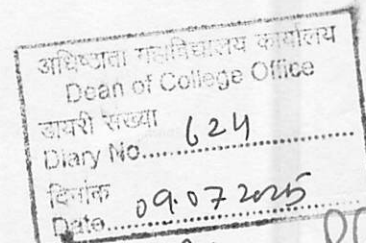 अधिष्ठाता महाविद्यालय कार्यालय
Dean of College Office
डायरी संख्या
Diary No...... 624
दिनांक
Date...... 09.07.2025